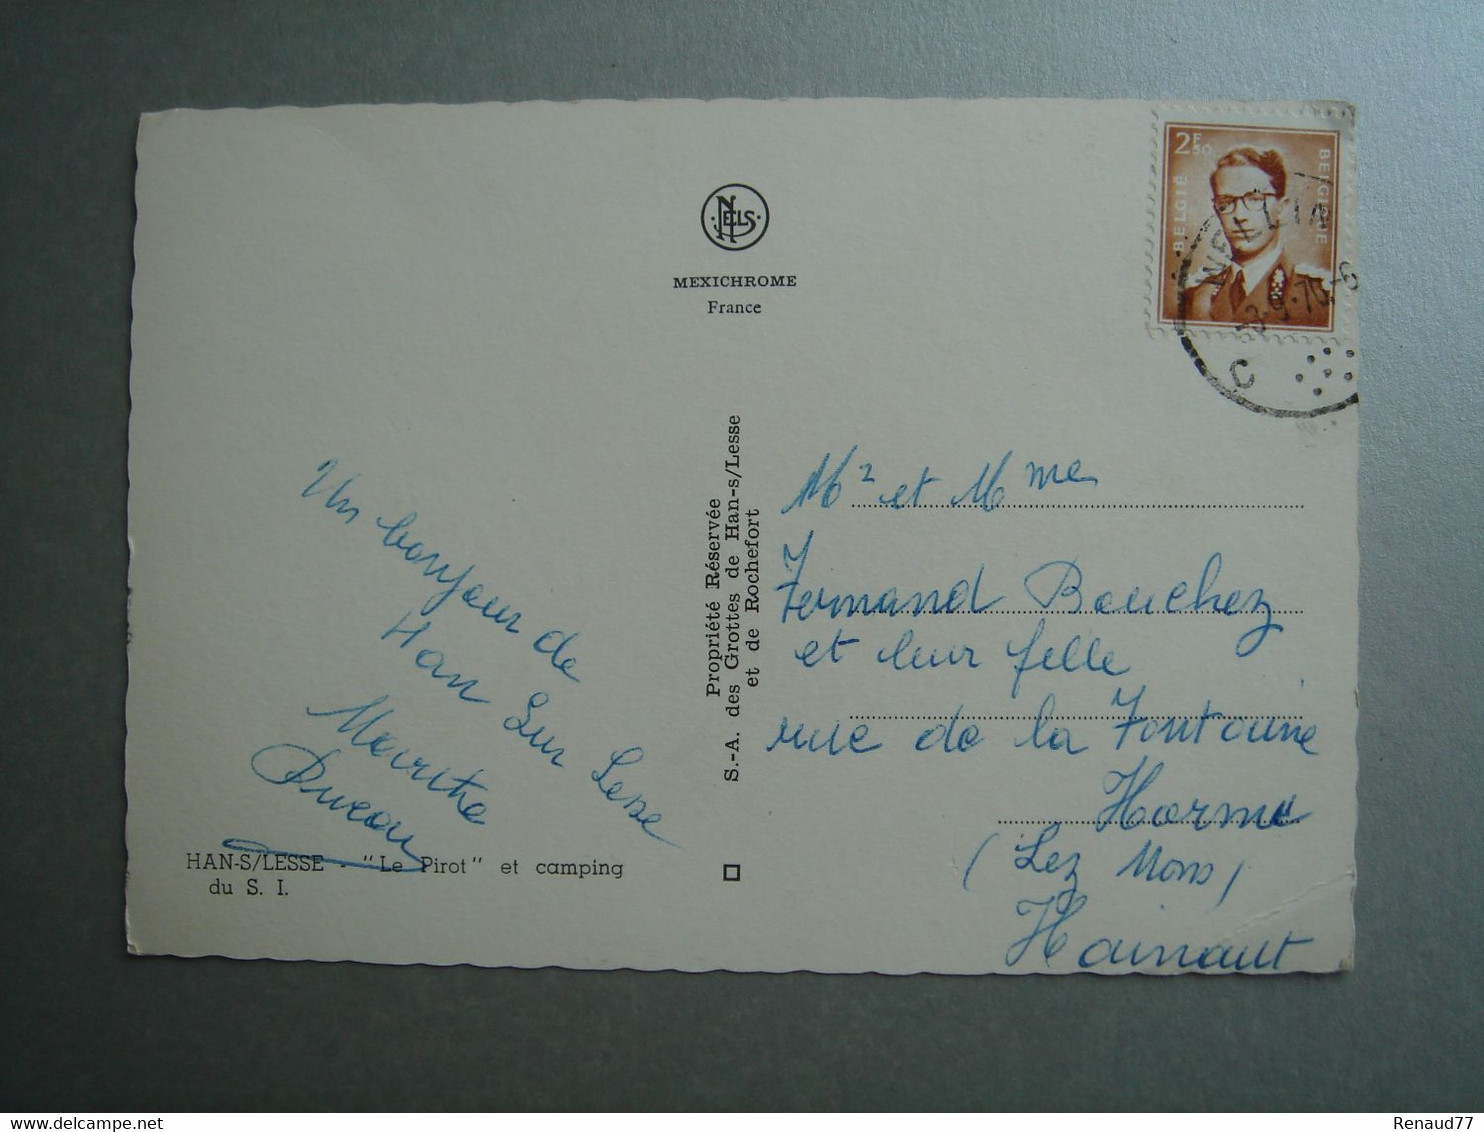 NELS
MEXICHROME
France
2F50
BELGIË
BELGIQUE
WELLIN
-9.70
C
Un bonjour de
Han Sur Lesse
HAN-S/LESSE - "Le Pirot" et camping
du S. I.
Propriété Réservée
S.-A. des Grottes de Han-s/Lesse
et de Rochefort
Mr et Mme
Fernand Bouchez
et leur fille
rue de la Fontaine
(Lez Mons)
Hainaut
Renaud77
www.delcampe.net